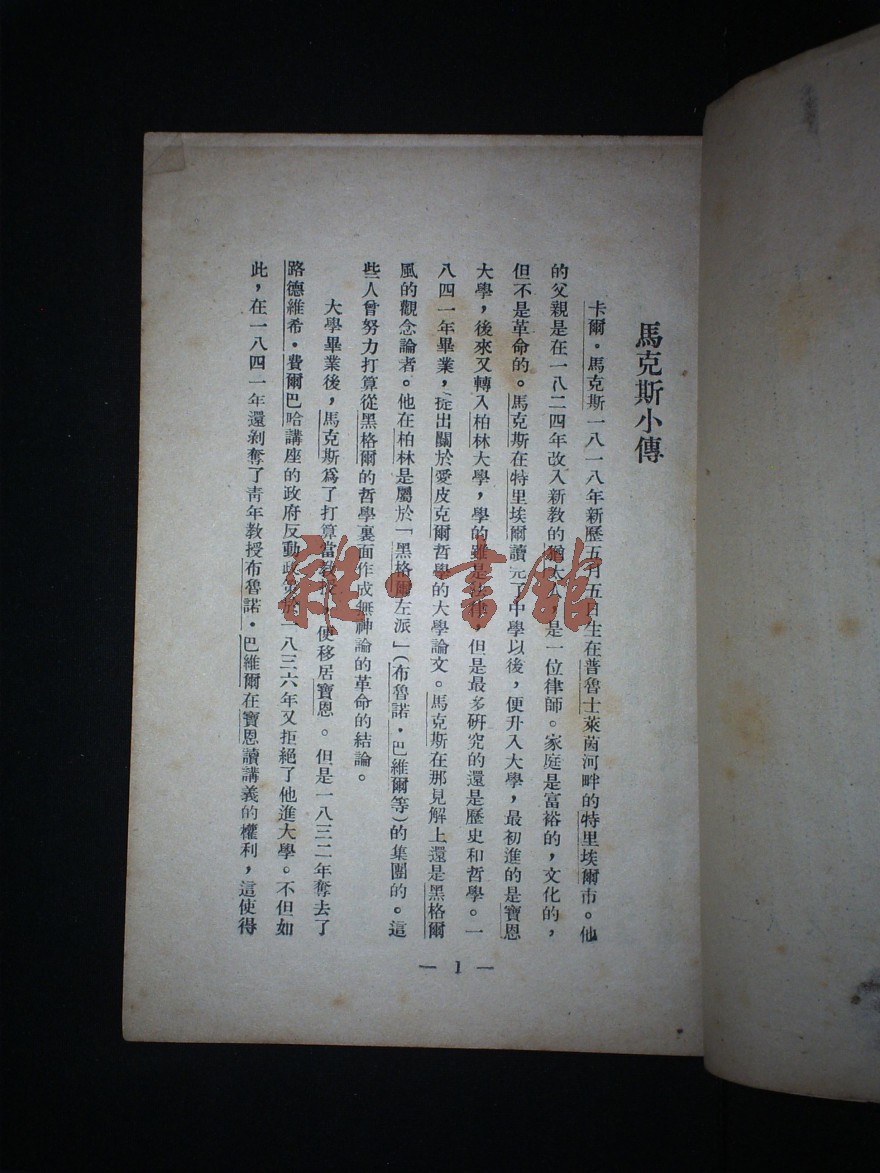 馬克斯小傳
卡爾·馬克斯一八一八年新歷五月五日生在普魯士萊茵河畔的特里埃爾市。他
的父親是在一八二四年改入新教的猶太人，是一位律師。家庭是富裕的，文化的，
但不是革命的。馬克斯在特里埃爾讀完了中學以後，便升入大學，最初進的是寶恩
大學，後來又轉入柏林大學，學的雖是法律，但是最多研究的還是歷史和哲學。一
八四一年畢業，提出關於愛皮克爾哲學的大學論文。馬克斯在那見解上還是黑格爾
風的觀念論者。他在柏林是屬於「黑格爾左派」（布魯諾·巴維爾等）的集團的。這
些人曾努力打算從黑格爾的哲學裏面作成無神論的革命的結論。
大學畢業後，馬克斯爲了打算當教授，便移居寶恩。但是一八三二年奪去了
路德維希·費爾巴哈講座的政府反動政策於一八三六年又拒絕了他進大學。不但如
此，在一八四一年還剝奪了青年教授布魯諾·巴維爾在寶恩讀講義的權利，這使得
— 1 —
雜·書館